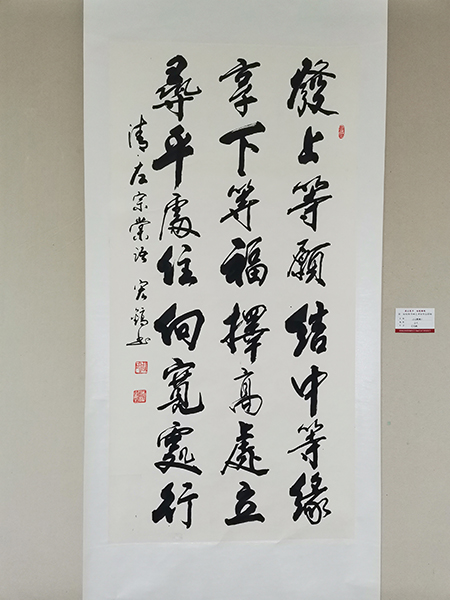 發上等願結中等緣
享下等福擇高處立
尋平處住向寬處行
清·左宗棠語